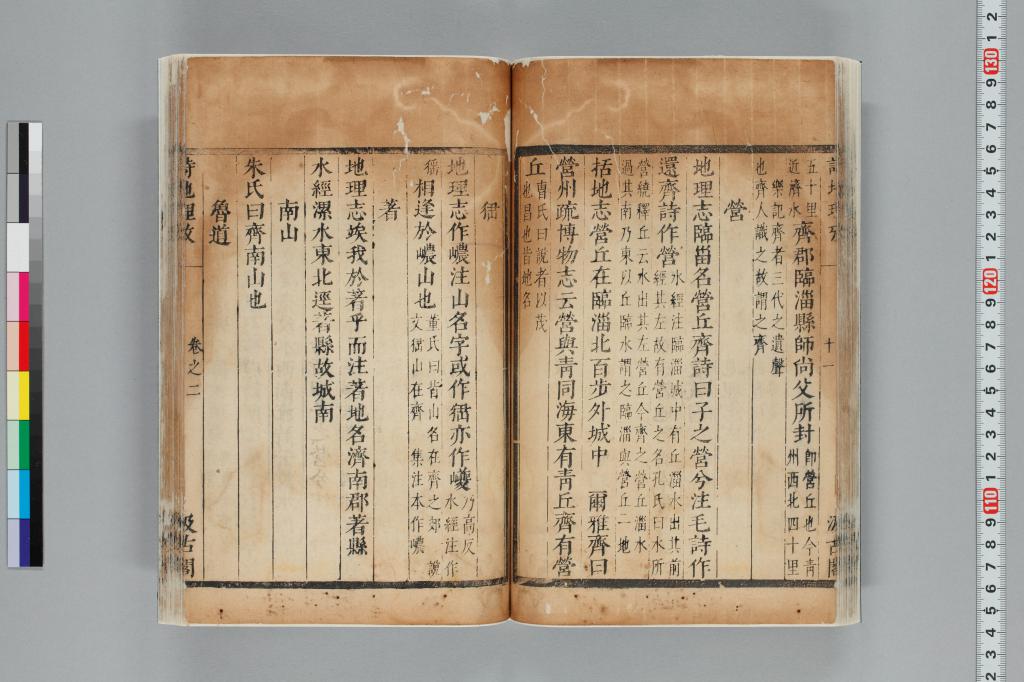 五十里
近濟水
齊郡臨淄縣師尚父所封
即營丘也今青
州西北四十里
樂記齊者三代之遺聲
也齊人識之故謂之齊
營
地理志臨甾名營丘齊詩曰子之營兮注毛詩作
還齊詩作營
水經注臨淄城中有丘淄水出其前
經其左故有營丘之名孔氏曰水所
營繞釋丘云水出其左營丘今齊之營丘淄水
過其南乃東以丘臨水謂之臨淄與營丘一地
括地志營丘在臨淄北百步外城中 爾雅齊曰
營州疏博物志云營與青同海東有青丘齊有營
丘
曹氏曰說者以茂
也昌也皆地名
峱
地理志作嶩注山名字或作峱亦作巎
乃高反
水經注作
猺
相逢於嶩山也
董氏曰皆山名在齊之郊 說
文峱山在齊 集注本作嶩
著
地理志竢我於著乎而注著地名濟南郡著縣
水經漯水東北逕著縣故城南
南山
朱氏曰齊南山也
魯道
詩地理攷
卷之二
汲古閣